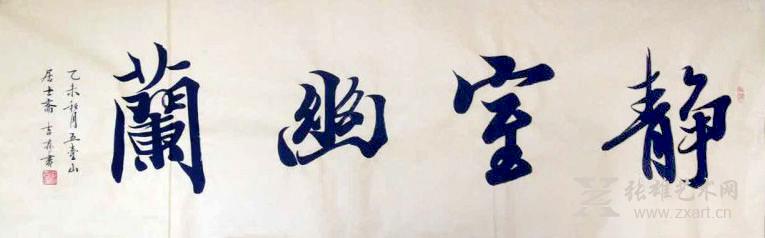 静室幽蘭
乙未秋月五臺山
居士齋 吉春書
张雄艺术网
www.zxart.cn